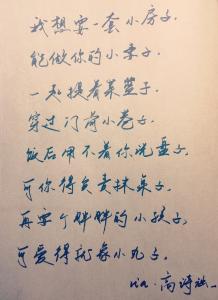 我想要一套小房子.
能做你的小妻子.
一起提着菜篮子.
穿过门前小巷子.
饭后用不着你洗盘子.
可你得负责抹桌子.
再要个胖胖的小孩子.
可爱得就象小丸子.
via.高诗